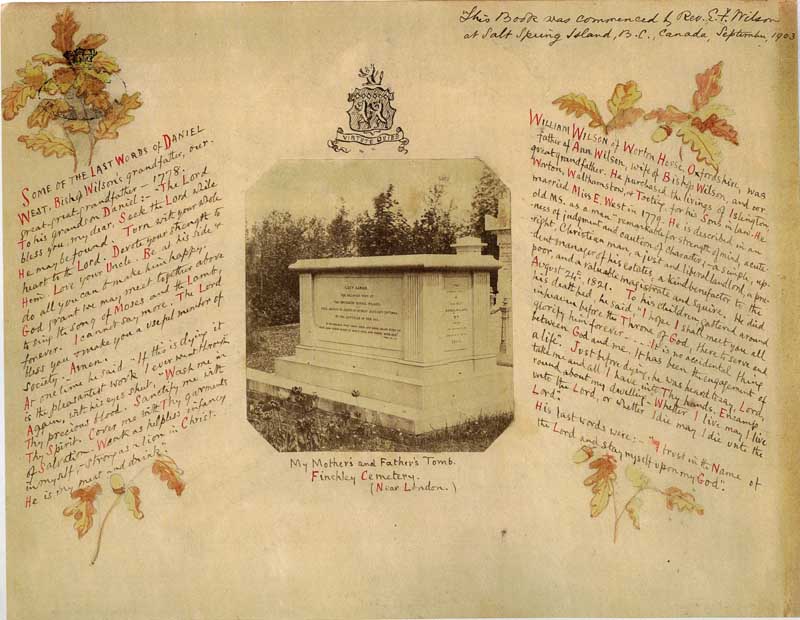 "This Book was commenced by Rev. E. F. Wilson
at Salt Spring Island, B.C., Canada, September, 1903
VIRTUTE DUCE
Some of the Last Words of Daniel
West, Bishop Wilson's grandfather, our
great-great grandfather – 1778.
To his grandson Daniel:– "The Lord
bless you, my dear. Seek the Lord while
He may be found. Turn with your whole
heart to the Lord. Devote your strength to
Him. Love your Uncle. Be at his side &
do all you can to make him happy.
God grant we may meet together above
to sing the song of Moses and the Lamb,
forever. I cannot say more. The Lord
bless you & make you a useful member of
society. Amen."
At one time he said – "If this is dying it
is the pleasantest work I ever was about in
Again, with his eyes shut. "Wash me in
Thy precious blood. Sanctify me with
Thy Spirit. Cover me with Thy garments
of Salvation. Weak as helpless infancy
in myself, strong as a lion in Christ.
He is my meat and drink."
LUCY SARAH
My Mother's and Father's Tomb.
Finchley Cemetery.
(Near London.)
William Wilson of Worton House, Oxfordshire, was
father of Ann Wilson, wife of Bishop Wilson, and our
great grandfather. He purchased the livings of Islington
Worton, Walthamstow & Tootley, for his Sons in law. He
married Miss E. West in 1779. He is described in an
old MS. as a man remarkable for strength of mind, acute-
ness of judgment and caution of character, – a simple, up-
right, Christian man, a just and liberal landlord, a pru-
dent manager of his estates, a kind benefactor to the
poor, and a valuable magistrate and Squire. He died
August 24th, 1821. To his children gathered around
his death bed, he said "I hope I shall meet you all
in heaven before the Throne of God, there to serve and
glorify him forever. . . . It is no accidental thing
between God and me. It has been the engagement of
a life". Just before dying, he was heard to say, Lord,
take me and all I have into Thy hands. Encamp
round about my dwelling. Whether I live may I live
unto the Lord, or whether I die may I die unto the
Lord."
His last words were:– "I trust in the Name of
the Lord and stay myself upon my God".